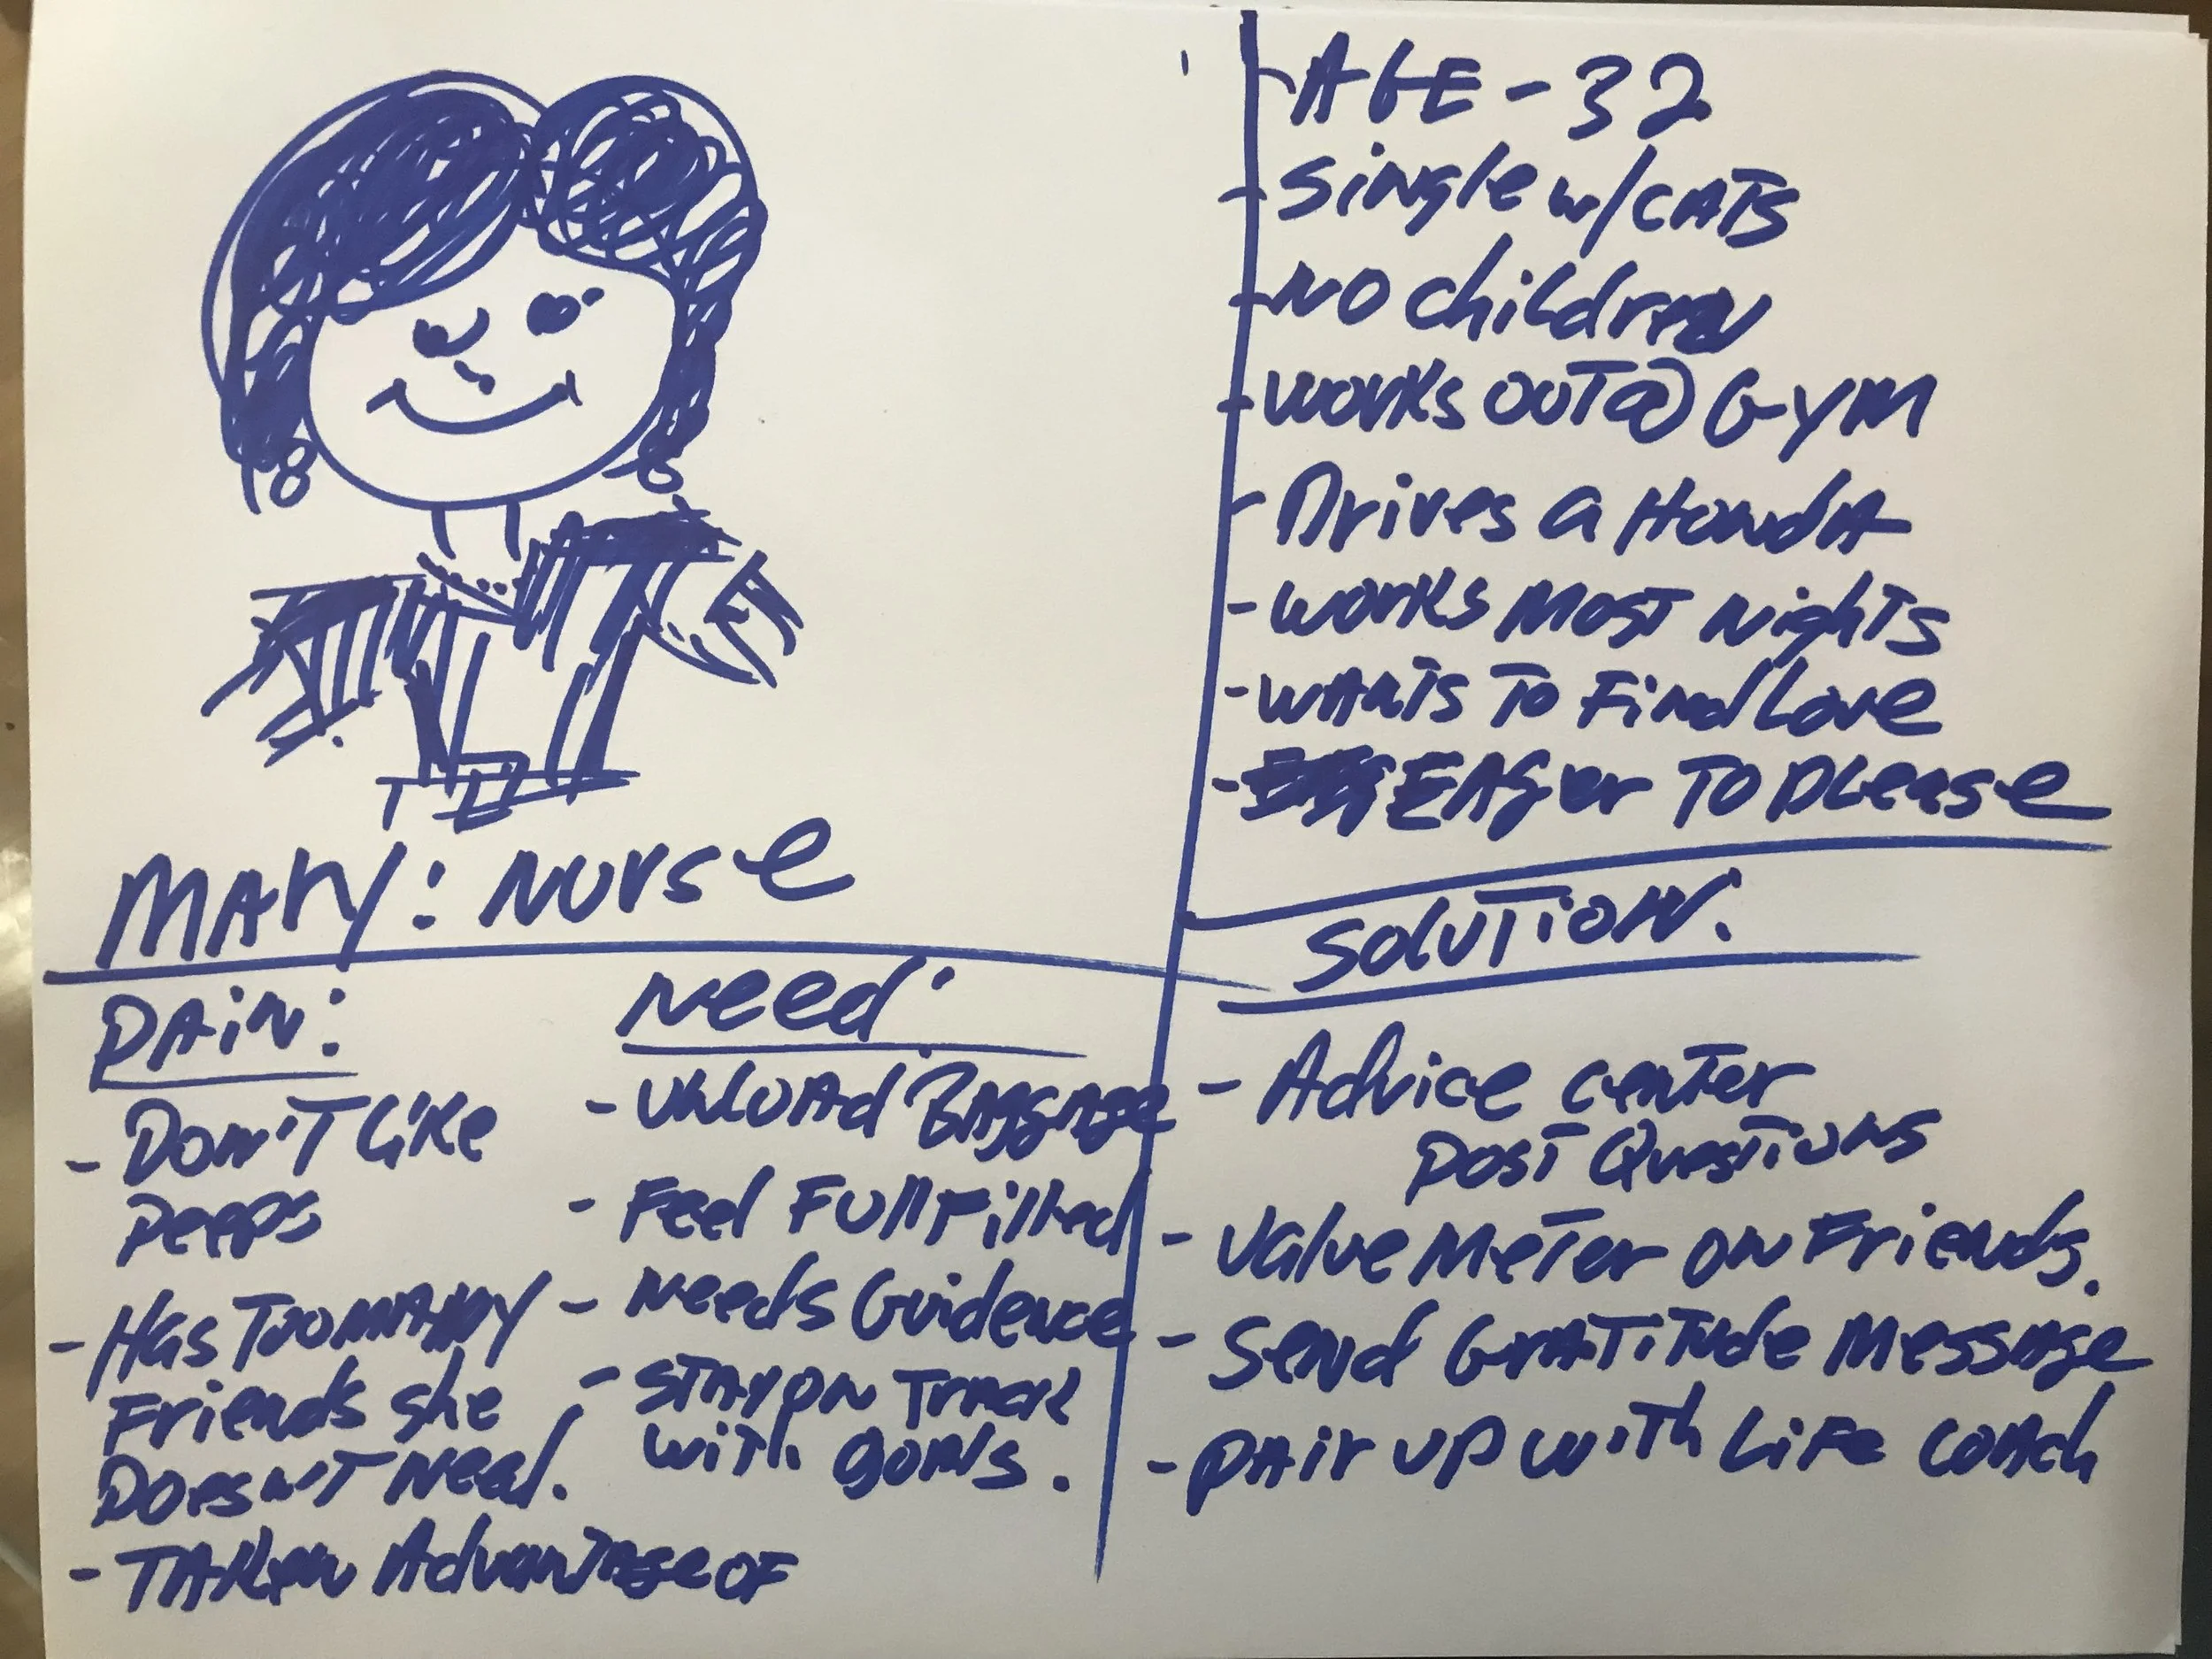 MARY: NURSE
- AGE - 32
- Single w/ CATS
- NO children
- WORKS OUT @ GYM
- Drives a HondA
- WORKS MOST Nights
- WANTS TO Find Love
- EAger TO Please
PAIN:
- DON'T Like
Peeps
- HAS TOO MANY
Friends she
Doesn't Need.
- TAKen AdvanTage OF
Need:
- UNLOAd BAggage
- Feel FullFilled
- Needs Guidence
- STAY ON Track
WiTh goals.
SOLUTION:
- Advice center
POST QuesTions
- Value MeTer ON Friends.
- Send GraTiTude Message
- PAir UP wiTh LiFe COAch